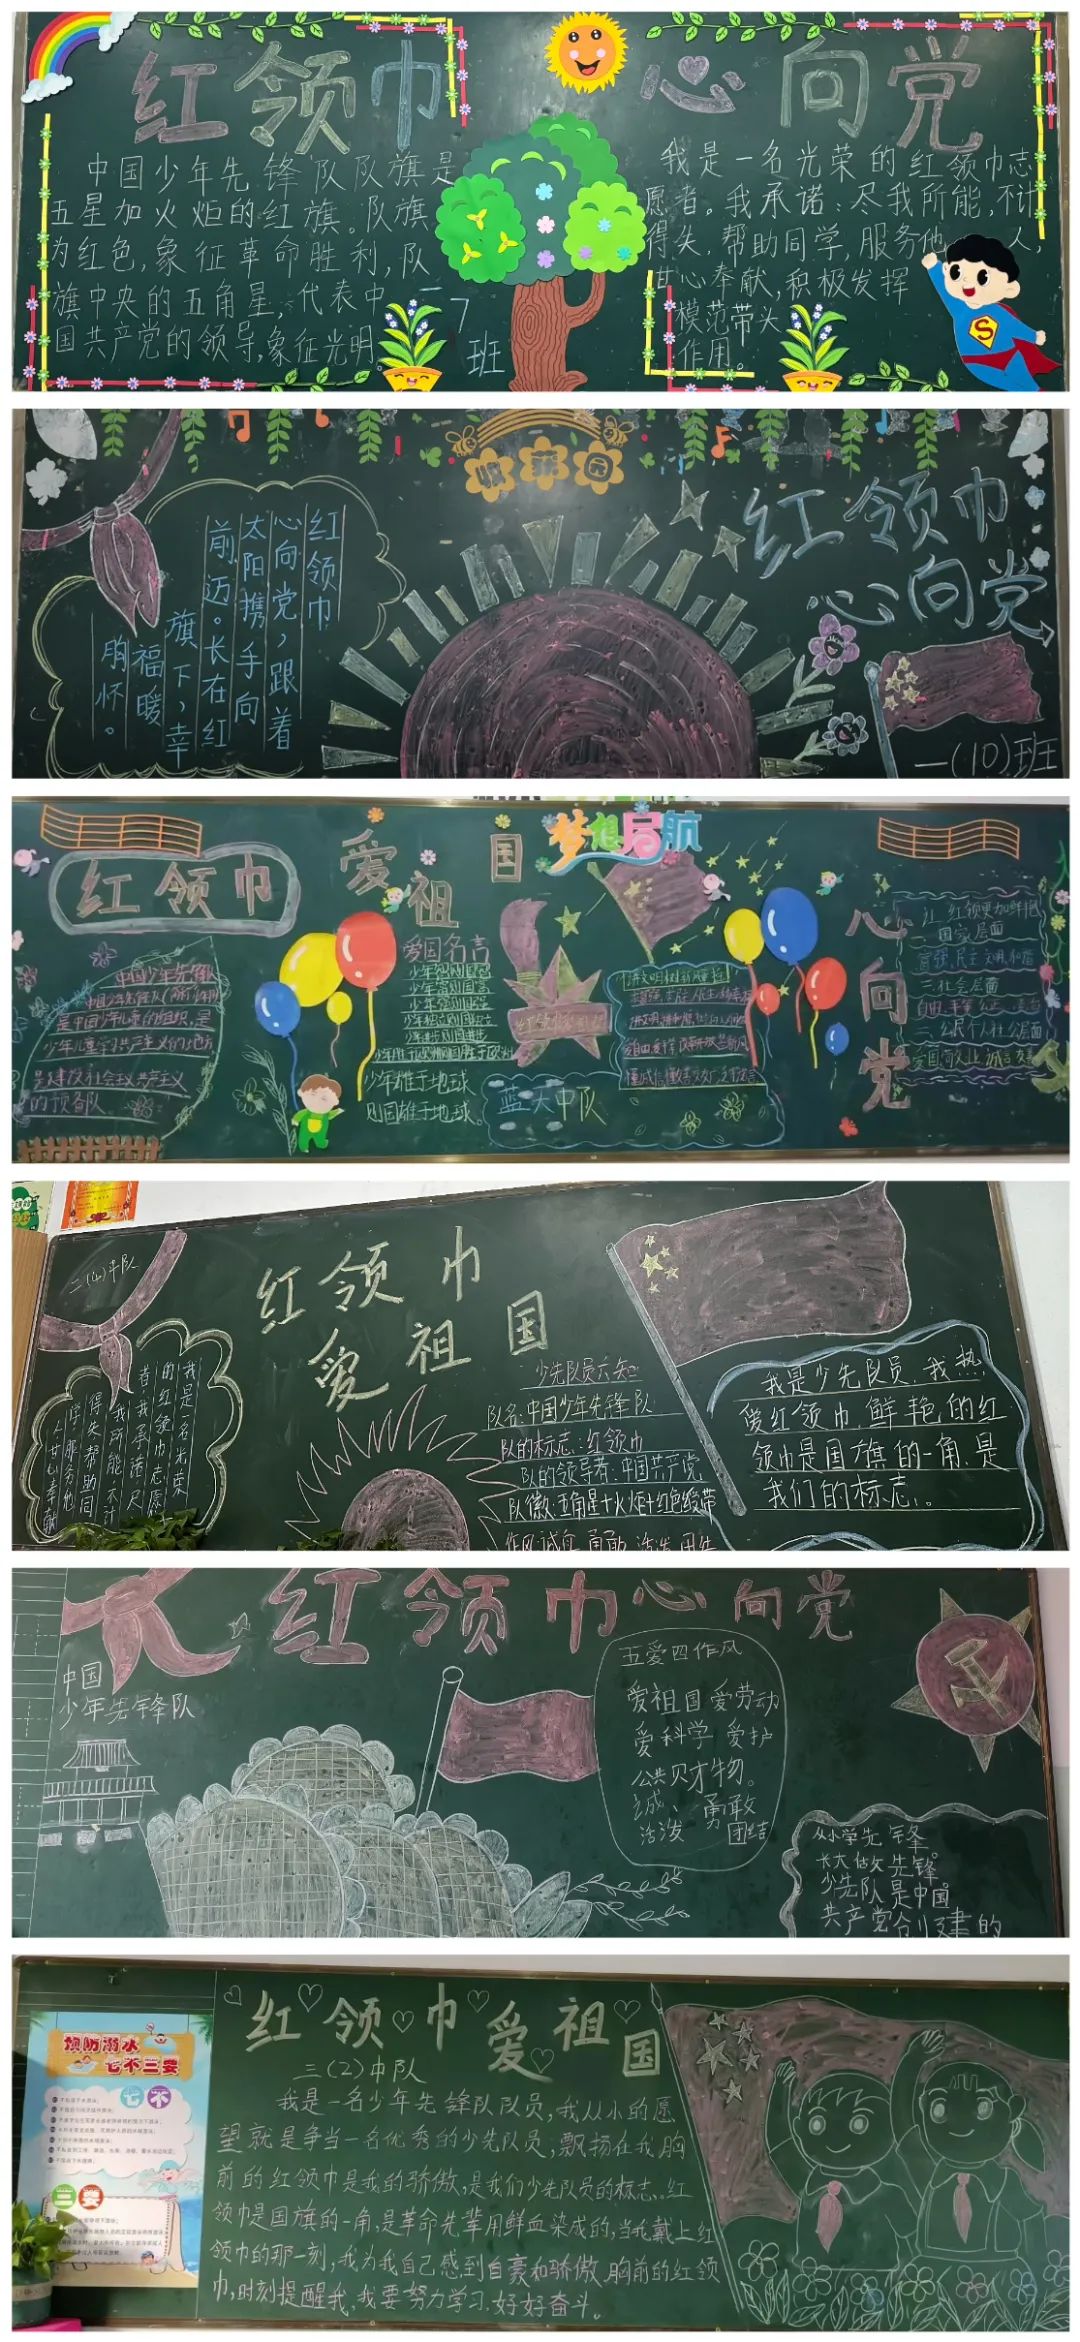 红领巾 心向党
中国少年先锋队队旗是
五星加火炬的红旗。队旗
为红色,象征革命胜利,队
旗中央的五角星,代表中
国共产党的领导,象征光明
一7
班
我是一名光荣的红领巾志
愿者。我承诺:尽我所能,不计
得失,帮助同学,服务他人,
甘心奉献,积极发挥
模范带头
作用。
S
收获园
红领巾
心向党
红领巾
心向党,跟着
太阳携手向
前迈。长在红
旗下,幸
福暖
胸怀。
一(10)班
梦想启航
红领巾
爱祖国
心向党
中国少年先锋队
是中国少年儿童的组织,是
是建设社会主义共产主义
的预备队。
爱国名言
少年雄于地球
则国雄于地球。
蓝天中队
国家层面
富强、民主、文明、和谐
三社会层面
二(4)中队
红领巾
爱祖国
我是一名光荣
的红领巾志愿
者,我承诺尽
我所能不计
得失帮助同
学,服务他
人甘心奉献
少先队员六知
队名:中国少年先锋队
队的标志:红领巾
队的领导者:中国共产党
队徽:五角星+火炬+红色绶带
作风:诚实、勇敢、活泼、团结
我是少先队员,我热
爱红领巾,鲜艳的红
领巾是国旗的一角,是
我们的标志。
红领巾心向党
中国
少年先锋队
五爱四作风
爱祖国 爱劳动
爱科学 爱护
公共财物。
诚、勇敢
活泼 团结
从小学先锋。
长大做先锋。
少先队是中国
共产党创建的
预防溺水
七不三要
七不
三要
红领巾爱祖国
三(2)中队
我是一名少年先锋队队员,我从小的愿
望就是争当一名优秀的少先队员,飘扬在我胸
前的红领巾是我的骄傲,是我们少先队员的标志。红
领巾是国旗的一角,是革命先辈用鲜血染成的,当我戴上红
领巾的那一刻,我为我自己感到自豪和骄傲。胸前的红领
巾,时刻提醒我,我要努力学习,好好奋斗。